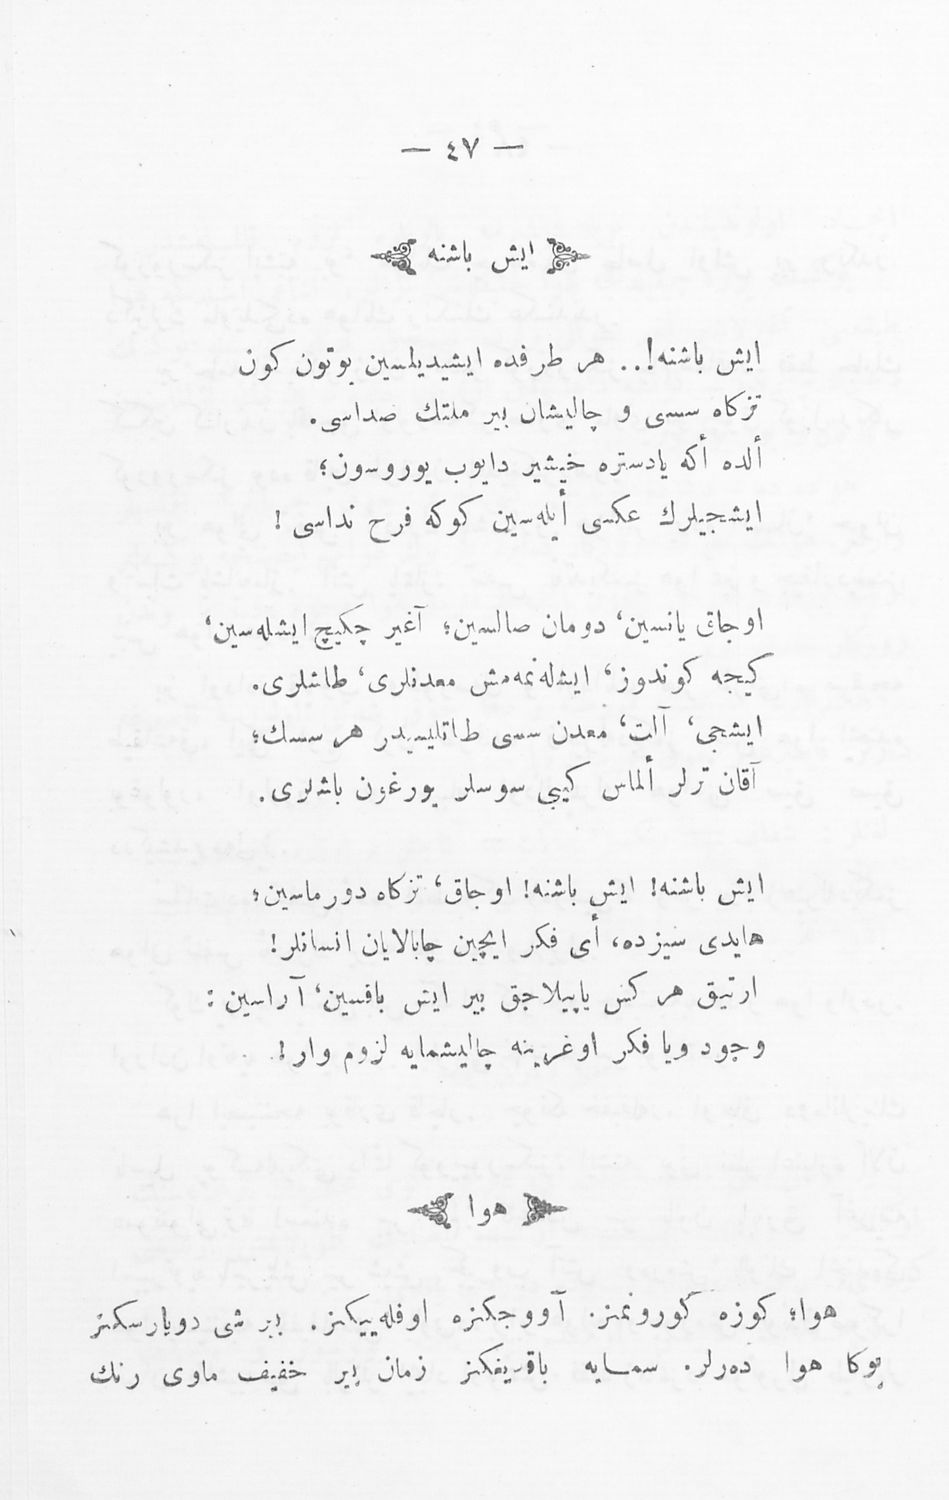 — ٤٧ —
ایش باشنه
ایش باشنه!.. هر طرفده ایشیدیلسین بوتون كون
تزكاه سسی و چالیشان بیر ملتك صداسی.
ألده أكه یادستره خیشیر دایوب یوروسون؛
ایشجیلرك عكسی أیله‌سین كوكه فرح نداسی!
اوجاق یانسین، دومان صالسین؛ آغیر چكیچ ایشله‌سین،
كیجه كوندوز، ایشله‌نمه‌مش معدنلری، طاشلری.
ایشجی، آلت، معدن سسی طاتلیسیدر هر سسك؛
آقان ترلر ألماس كیبی سوسلر یورغون باشلری.
ایش باشنه! ایش باشنه! اوجاق، تزكاه دورماسین؛
هایدی سیزده، أی فكر ایچین چابالایان انسانلر!
ارتیق هر كس یاپیلاجق بیر ایش باقسین، آراسین:
وجود ویا فكر اوغرینه چالیشمایه لزوم وار!.
هوا
هوا؛ كوزه كورونمز. آووجكزه اوفله‌ییكز. بیر شی دویارسكز
بوكا هوا ده‌رلر. سمایه باقدیغكز زمان بیر خفیف ماوی رنك